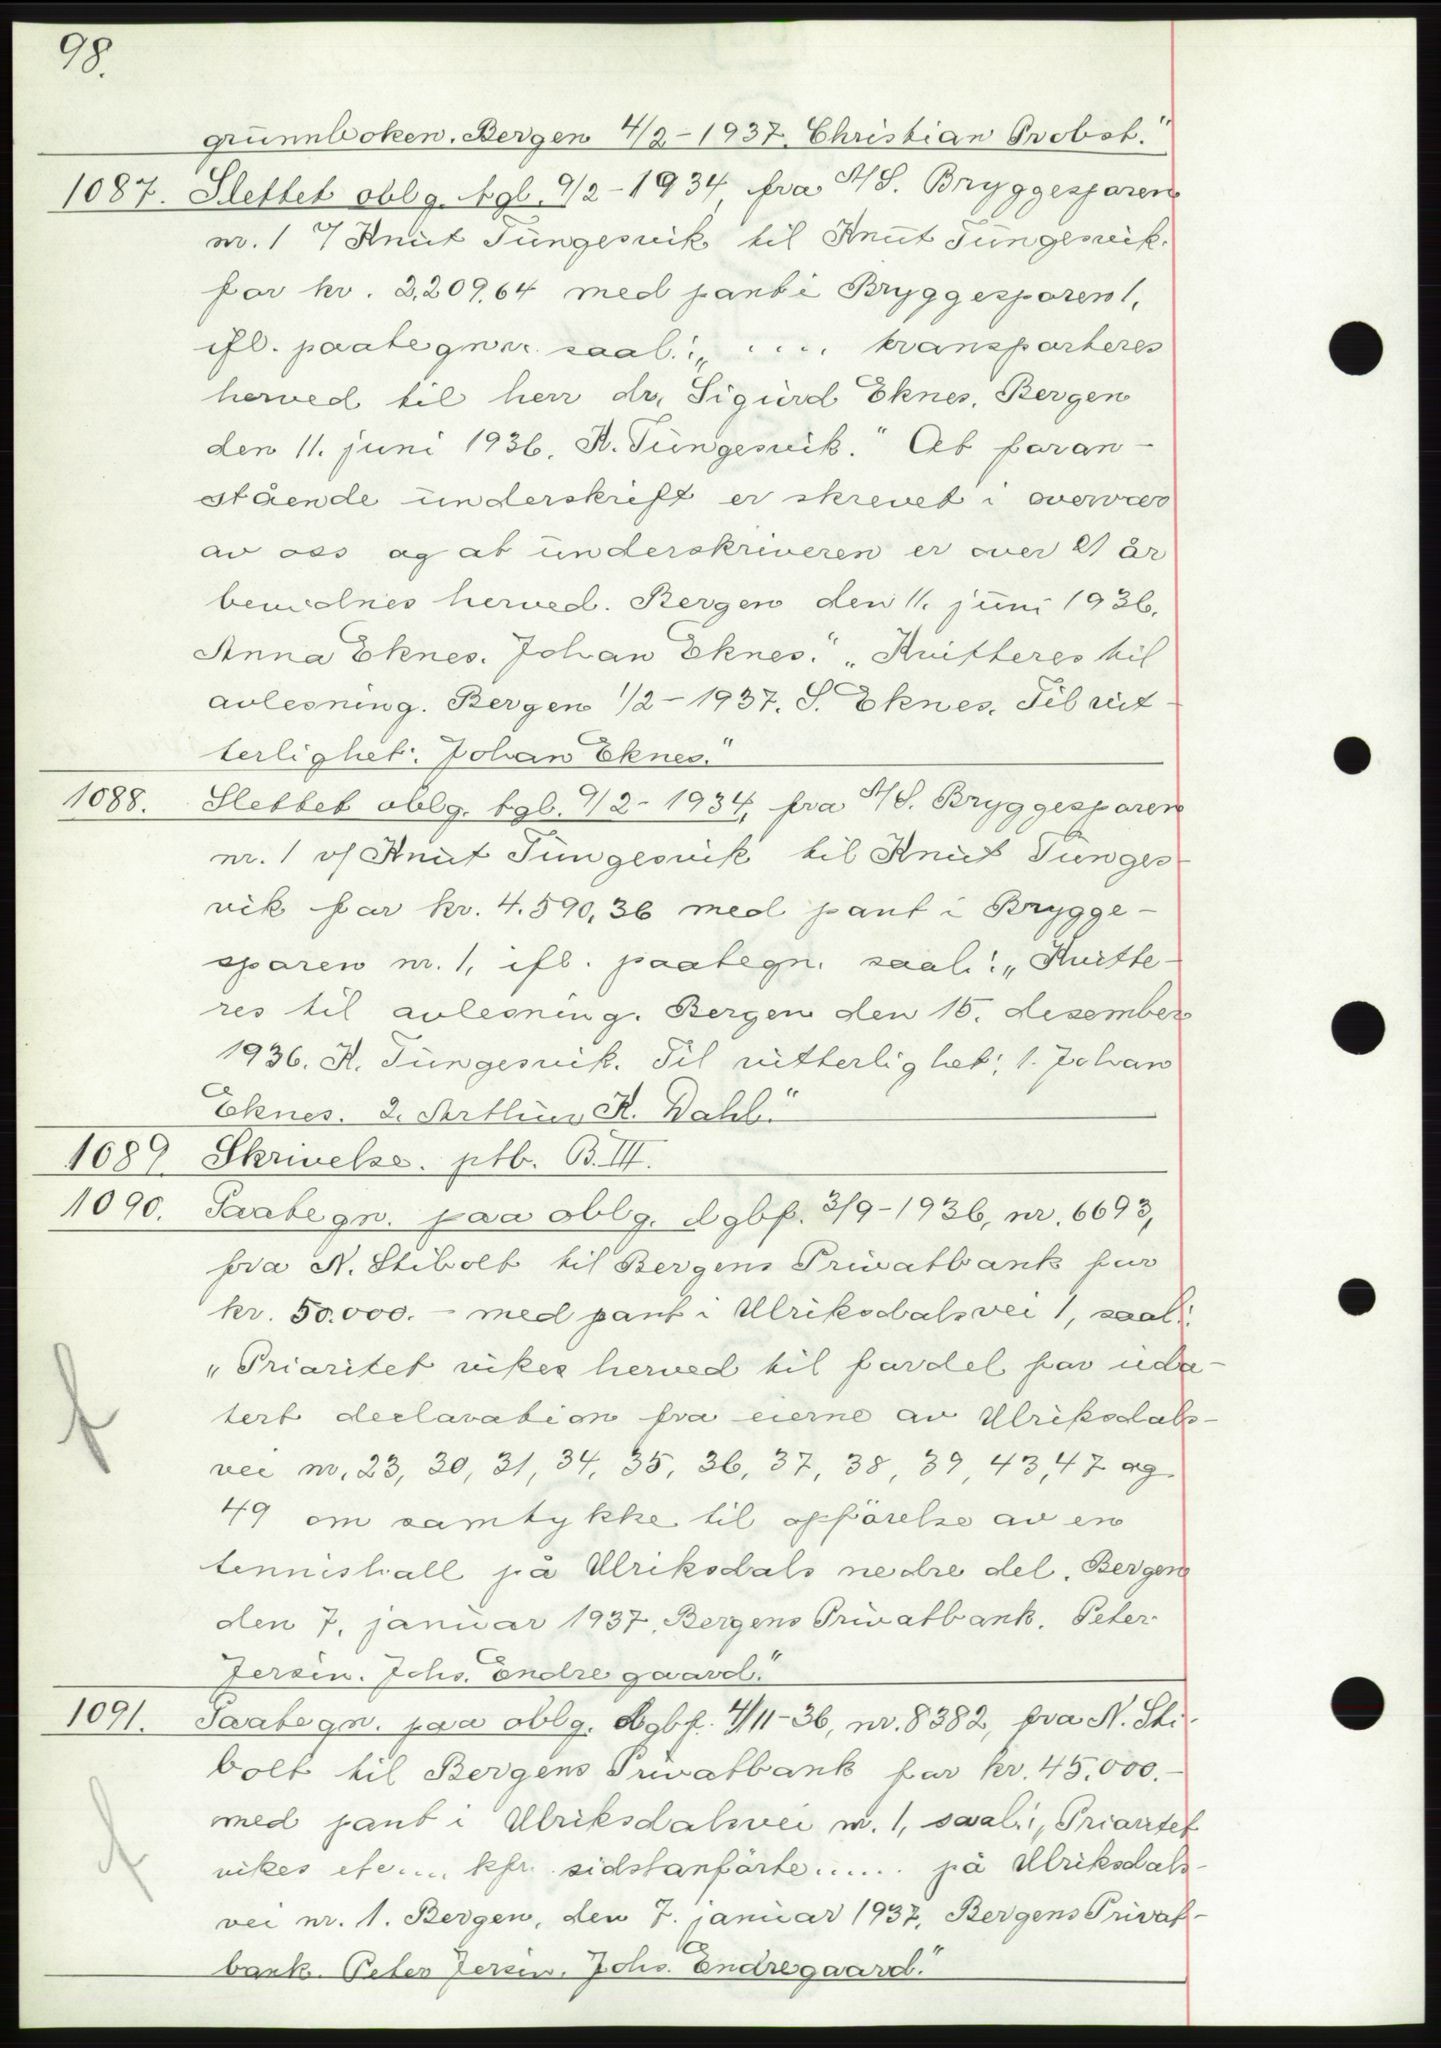 98.
grunnboken. Bergen 4/2-1937. Christian Probst."
1087. Slettet oblg. tgl. 9/2-1934, fra A/S. Bryggesporen
nr. 1 v/ Knut Tungesvik til Knut Tungesvik
for kr. 2.209.64 med pant i Bryggesporen 1,
ifl. paategn. saal.: „ .... transporteres
herved til herr dr. Sigurd Eknes. Bergen
den 11. juni 1936. K. Tungesvik." At foran-
stående underskrift er skrevet i overvær
av oss og at underskriveren er over 21 år
bevidnes herved. Bergen den 11. juni 1936.
Anna Eknes. Johan Eknes." „Kvitteres til
avlesning. Bergen 1/2-1937. S. Eknes. Til vit-
terlighet: Johan Eknes."
1088. Slettet oblg. tgl. 9/2-1934, fra A/S. Bryggesporen
nr. 1 v/ Knut Tungesvik til Knut Tunges-
vik for kr. 4.590,36 med pant i Brygge-
sporen nr. 1, ifl. paategn. saal.: „Kvitte-
res til avlesning. Bergen den 15. desember
1936. K. Tungesvik. Til vitterlighet: 1. Johan
Eknes. 2. Arthur K. Dahl."
1089. Skrivelse. ptb. B. III.
1090. Paategn. paa oblg. dgbf. 3/9-1936, nr. 6693,
fra N. Stibolt til Bergens Privatbank for
kr. 50.000.- med pant i Ulriksdalsvei 1, saal.:
„Prioritet vikes herved til fordel for uda-
tert declaration fra eierne av Ulriksdals-
vei nr. 23, 30, 31, 34, 35, 36, 37, 38, 39, 43, 47 og
49 om samtykke til opförelse av en
tennishall på Ulriksdals nedre del. Bergen
den 7. januar 1937. Bergens Privatbank. Peter
Jersin. Johs. Endregaard."
1091. Paategn. paa oblg. dgbf. 4/11-36, nr. 8382, fra N. Sti-
bolt til Bergens Privatbank for kr. 45.000.-
med pant i Ulriksdalsvei nr. 1, saal.: „Prioritet
vikes etc.... kfr. sidstanförte...... på Ulriksdals-
vei nr. 1. Bergen, den 7. januar 1937. Bergens Privat-
bank. Peter Jersin. Johs. Endregaard."